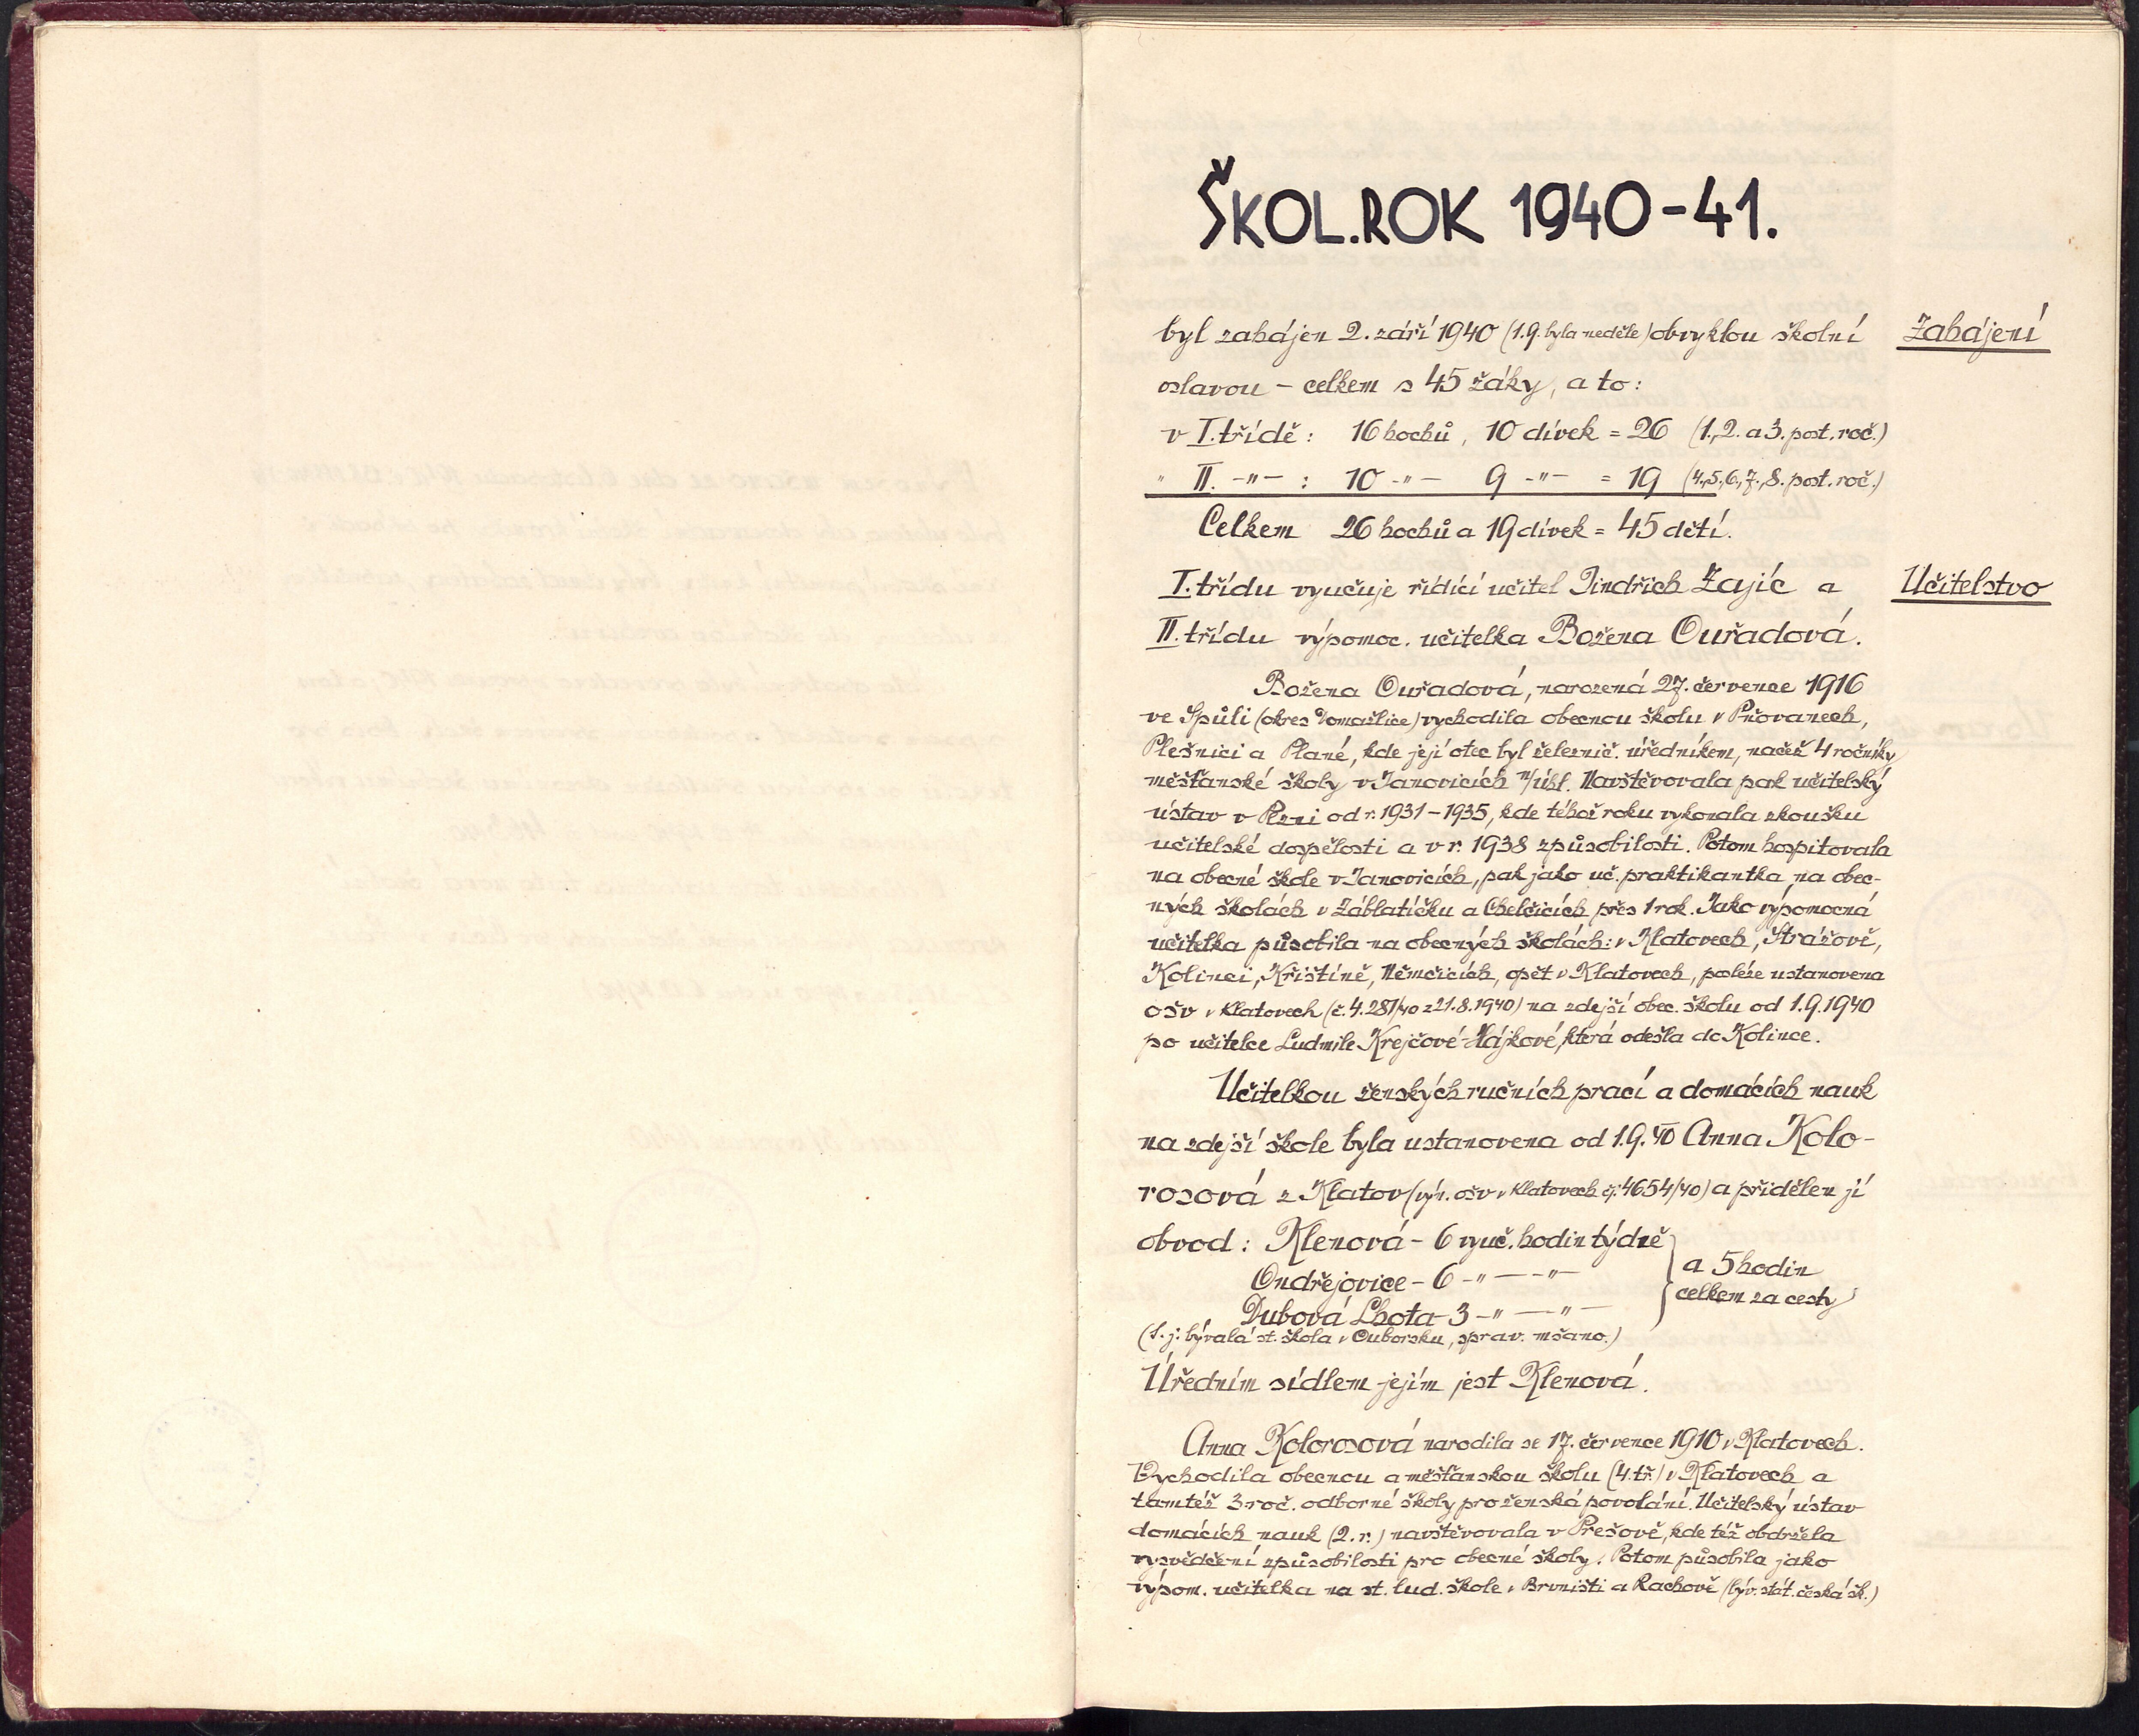 ŠKOL. ROK 1940-41.
byl zahájen 2. září 1940 (1.9. byla neděle) obvyklou školní
Zahájení
oslavou - celkem s 45 žáky, a to:
v I. třídě: 16 hochů, 10 dívek = 26 (1., 2. a 3. post. roč.)
" II. -"- : 10 -"- 9 -"- = 19 (4.,5.,6.,7.,8. post. roč.)
Celkem 26 hochů a 19 dívek = 45 dětí.
I. třídu vyučuje řídící učitel Jindřich Zajíc a
Učitelstvo
II. třídu výpomoc. učitelka Božena Ouřadová.
Božena Ouřadová, narozená 27. července 1916
ve Spůli (okres Domažlice) vychodila obecnou školu v Pňovanech,
Plešnici a Plané, kde její otec byl železnič. úředníkem, načež 4 ročníky
měšťanské školy v Janovicích n/Úhl. Navštěvovala pak učitelský
ústav v Plzni od r. 1931 - 1935, kde téhož roku vykonala zkoušku
učitelské dospělosti a v r. 1938 způsobilosti. Potom hospitovala
na obecné škole v Janovicích, pak jako uč. praktikantka na obec-
ných školách v Záblatíčku a Chelčicích přes 1 rok. Jako výpomocná
učitelka působila na obecných školách: v Klatovech, Strážově,
Kolinci, Křištíně, Němčicích, opět v Klatovech, posléze ustanovena
OŠV v Klatovech (č. 4.281/40 z 21.8.1940) na zdejší obec. školu od 1.9.1940
po učitelce Ludmile Krejčové-Hájkové, která odešla do Kolince.
Učitelkou ženských ručních prací a domácích nauk
na zdejší škole byla ustanovena od 1.9.40 Anna Kolo-
rosová z Klatov (výn. OŠV v Klatovech čj. 4654/40) a přidělen jí
obvod: Klenová - 6 vyuč. hodin týdně
Ondřejovice - 6 -"- -"-
a 5 hodin
celkem za cesty
Dubová Lhota - 3 -"- -"-
(t. j. bývalá st. škola v Ouborsku, sprav. mšano.)
Úředním sídlem jejím jest Klenová.
Anna Kolorosová narodila se 17. července 1910 v Klatovech.
Vychodila obecnou a měšťanskou školu (4. tř.) v Klatovech a
tamtéž 3 roč. odborné školy pro ženská povolání. Učitelský ústav
domácích nauk (2. r.) navštěvovala v Prešově, kde též obdržela
vysvědčení způsobilosti pro obecné školy. Potom působila jako
výpom. učitelka na st. lud. škole v Brvništi a Rachově (býv. stát. česká šk.)